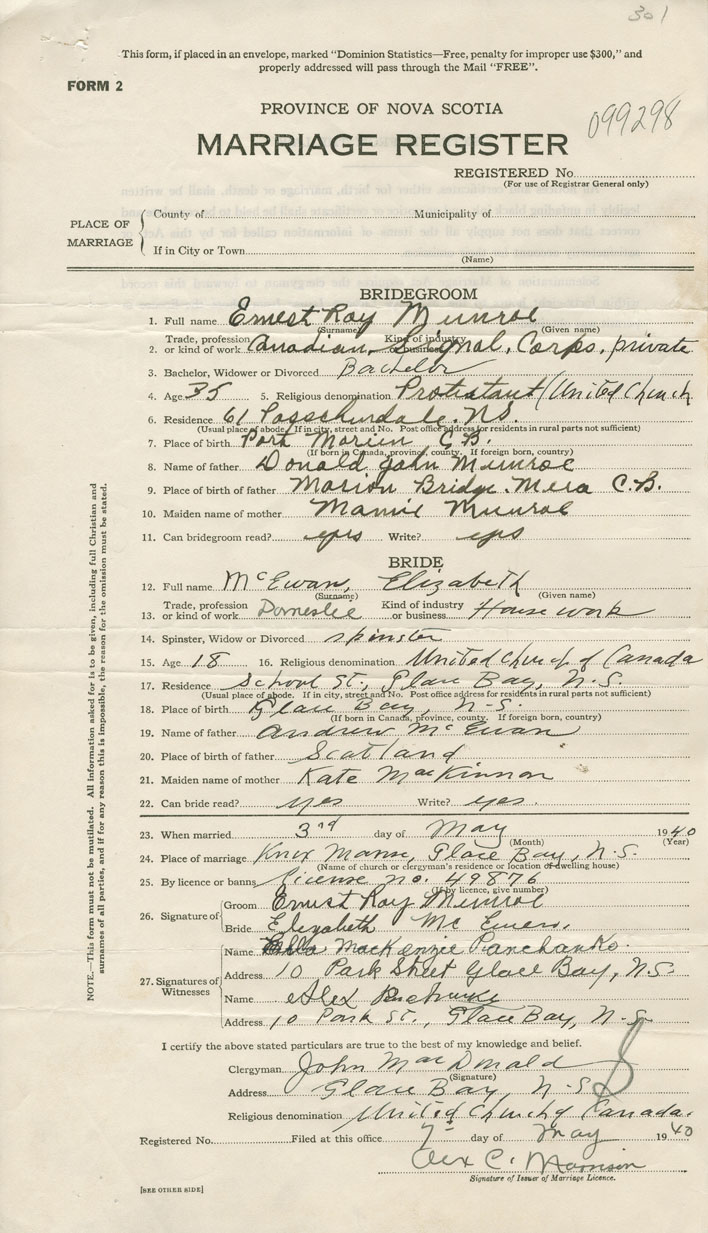 301
This form, if placed in an envelope, marked "Dominion Statistics—Free, penalty for improper use $300," and
properly addressed will pass through the Mail "FREE".
FORM 2
PROVINCE OF NOVA SCOTIA
099298
MARRIAGE REGISTER
REGISTERED No.
(For use of Registrar General only)
PLACE OF MARRIAGE
County of Municipality of
If in City or Town
(Name)
BRIDEGROOM
1. Full name Ernest Roy Munroe
(Surname) (Given name)
2. Trade, profession or kind of work Kind of industry or business Canadian Signal Corps. private
3. Bachelor, Widower or Divorced Bachelor
4. Age 35 5. Religious denomination Protestant (United Church
6. Residence 61 Passchendale. N.S.
(Usual place of abode. If in city, street and No. Post office address for residents in rural parts not sufficient)
7. Place of birth Port Morien C.B.
(If born in Canada, province, county. If foreign born, country)
8. Name of father Donald John Munroe
9. Place of birth of father Marion Bridge. Mira C.B.
10. Maiden name of mother Mamie Munroe
11. Can bridegroom read? yes Write? yes
BRIDE
12. Full name McEwan, Elizabeth
(Surname) (Given name)
13. Trade, profession or kind of work Domestic Kind of industry or business House work
14. Spinster, Widow or Divorced spinster
15. Age 18 16. Religious denomination United Church of Canada
17. Residence School St., Glace Bay, N.S.
(Usual place of abode. If in city, street and No. Post office address for residents in rural parts not sufficient)
18. Place of birth Glace Bay, N-S.
(If born in Canada, province, county. If foreign born, country)
19. Name of father Andrew McEwan
20. Place of birth of father Scotland
21. Maiden name of mother Kate MacKinnon
22. Can bride read? yes Write? yes.
23. When married 3rd day of May 1940
(Month) (Year)
24. Place of marriage Knox Manse, Glace Bay, N.S.
(Name of church or clergyman's residence or location of dwelling house)
25. By licence or banns License no. 49876
(If by licence, give number)
26. Signature of Groom Ernest Roy Munroe
Bride Elizabeth Mc Ewen,
27. Signatures of Witnesses
Name MacKenzie Panchanko.
Address 10 Park Street Glace Bay, N.S.
Name Alex
Address 10 Park St., Glace Bay, N-S.
I certify the above stated particulars are true to the best of my knowledge and belief.
Clergyman John MacDonald
(Signature)
Address Glace Bay, N-S.
Religious denomination United Church of Canada.
Registered No. Filed at this office 7 day of May 1940
Alex C. Morrison
Signature of Issuer of Marriage Licence.
[SEE OTHER SIDE]
NOTE.—This form must not be mutilated. All information asked for is to be given, including full Christian and
surnames of all parties, and if for any reason this is impossible, the reason for the omission must be stated.